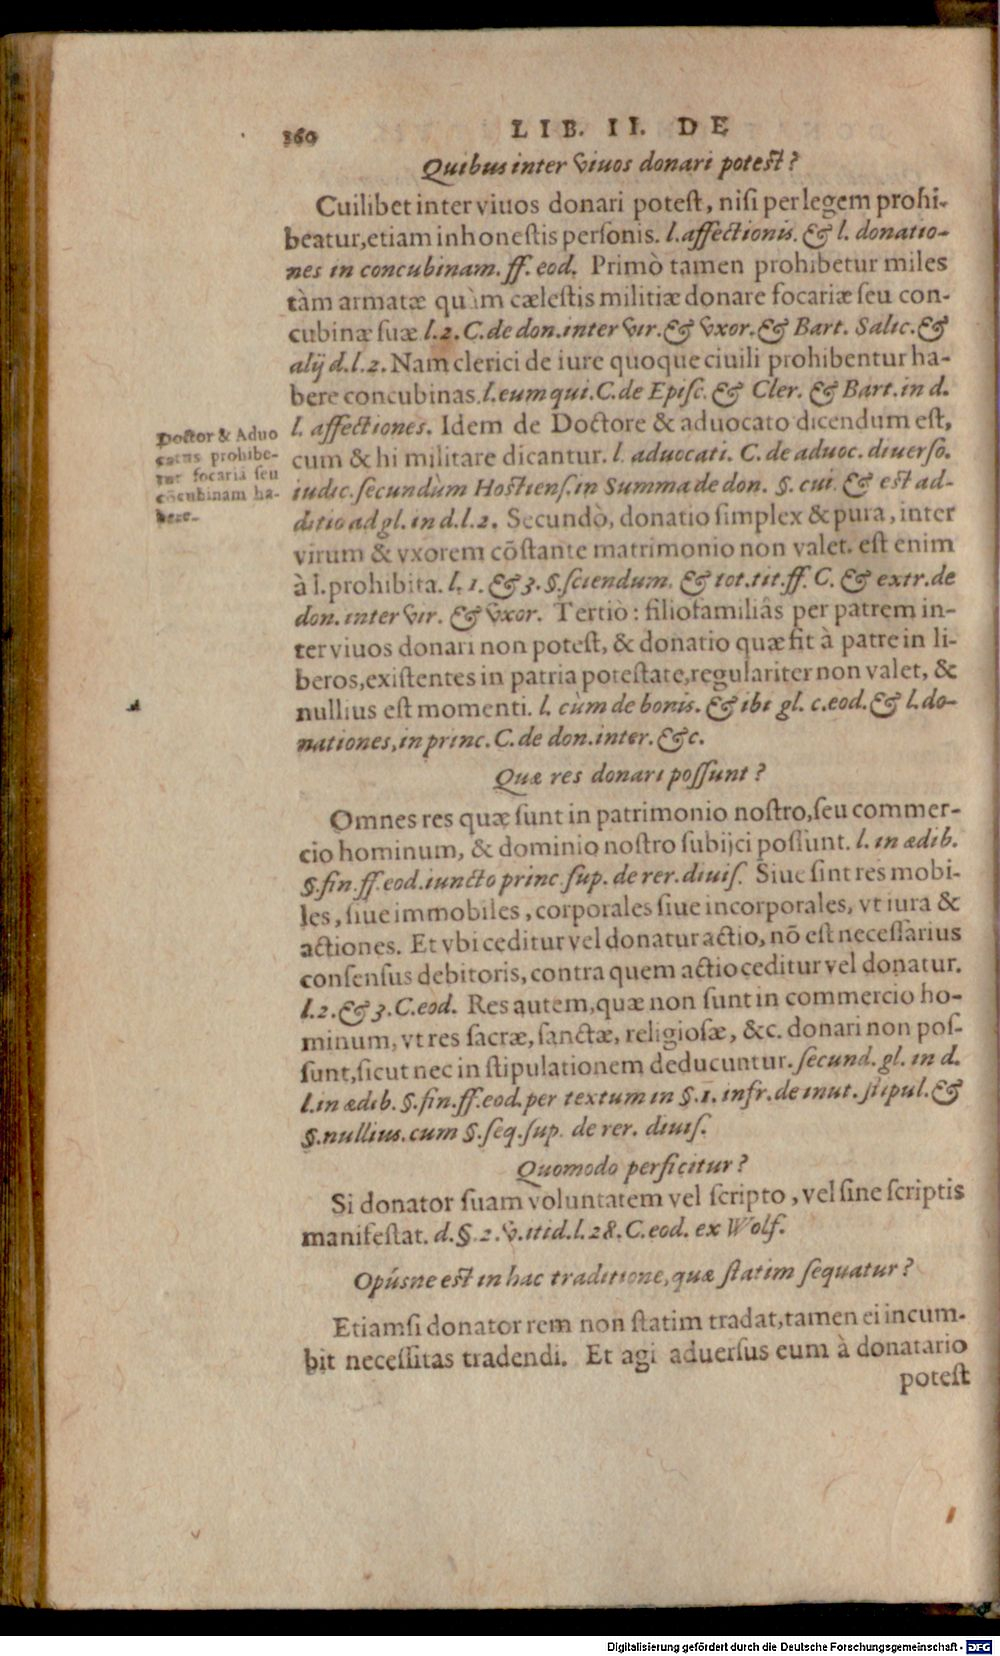 360 LIB. II. DE
Quibus inter viuos donari potest?
Cuilibet inter viuos donari potest, nisi per legem prohi-
beatur, etiam inhonestis personis. l. affectionis. & l. donatio-
nes in concubinam. ff. eod. Primò tamen prohibetur miles
tàm armatæ quàm cælestis militiæ donare focariæ seu con-
cubinæ suæ l. 2. C. de don. inter vir. & vxor. & Bart. Salic. &
alij d. l. 2. Nam clerici de iure quoque ciuili prohibentur ha-
bere concubinas. l. eum qui. C. de Episc. & Cler. & Bart. in d.
l. affectiones. Idem de Doctore & aduocato dicendum est,
cum & hi militare dicantur. l. aduocati. C. de aduoc. diuerso.
iudic. secundùm Hostiens. in Summa de don. §. cui. & est ad-
ditio ad gl. in d. l. 2. Secundò, donatio simplex & pura, inter
virum & vxorem cōstante matrimonio non valet. est enim
à l. prohibita. l. 1. & 3. §. sciendum. & tot. tit. ff. C. & extr. de
don. inter vir. & vxor. Tertiò: filiofamiliâs per patrem in-
ter viuos donari non potest, & donatio quæ fit à patre in li-
beros, existentes in patria potestate, regulariter non valet, &
nullius est momenti. l. cùm de bonis. & ibi gl. c. eod. & l. do-
nationes, in princ. C. de don. inter. &c.
Doctor & Aduo
catus prohibe-
tur focariã seu
cõcubinam ha-
bere.
Quæ res donari possunt?
Omnes res quæ sunt in patrimonio nostro, seu commer-
cio hominum, & dominio nostro subijci possunt. l. in ædib.
§. fin. ff. eod. iuncto princ. sup. de rer. diuis. Siue sint res mobi-
les, siue immobiles, corporales siue incorporales, vt iura &
actiones. Et vbi ceditur vel donatur actio, nō est necessarius
consensus debitoris, contra quem actio ceditur vel donatur.
l. 2. & 3. C. eod. Res autem, quæ non sunt in commercio ho-
minum, vt res sacræ, sanctæ, religiosæ, &c. donari non pos-
sunt, sicut nec in stipulationem deducuntur. secund. gl. in d.
l. in ædib. §. fin. ff. eod. per textum in §. 1. infr. de inut. stipul. &
§. nullius. cum §. seq. sup. de rer. diuis.
Quomodo perficitur?
Si donator suam voluntatem vel scripto, vel sine scriptis
manifestat. d. §. 2. v. itid. l. 28. C. eod. ex Wolf.
Opúsne est in hac traditione, quæ statim sequatur?
Etiamsi donator rem non statim tradat, tamen ei incum-
bit necessitas tradendi. Et agi aduersus eum à donatario
potest
Digitalisierung gefördert durch die Deutsche Forschungsgemeinschaft - DFG